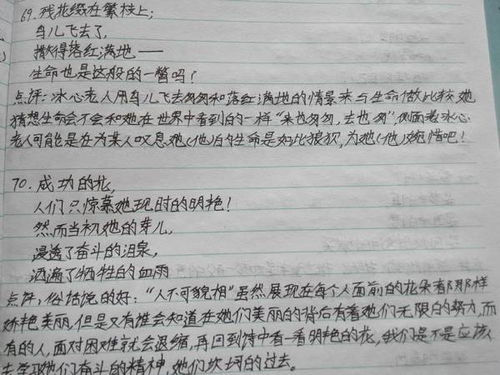 69.残花缀在繁枝上;
鸟儿飞去了,
撒得落红满地——
生命也是这般的一瞥吗?
点评:冰心老人用鸟儿飞去匆匆和落红满地的情景来与生命做比较,她
猜想生命会不会和她在世界中看到的一样"来也匆匆,去也匆",侧面老冰心
老人可能是在为某人叹息她(他)的生命是如此狼狈,为她(他)惋惜吧!
70.成功的花,
人们只惊慕她现时的明艳!
然而当初她的芽儿,
浸透了奋斗的泪泉,
洒遍了牺牲的血雨
点评:俗话说的好:"人不可貌相"虽然展现在每个人面前的花朵有那那样
娇艳美丽,但是又有谁会知道在她们美丽的背后有着她们无限的努力,而
有的人,面对困难就会退缩,再回到诗中看一看明艳的花,我们是不是应该
去学习她们奋斗的精神,她们坎坷的过去。